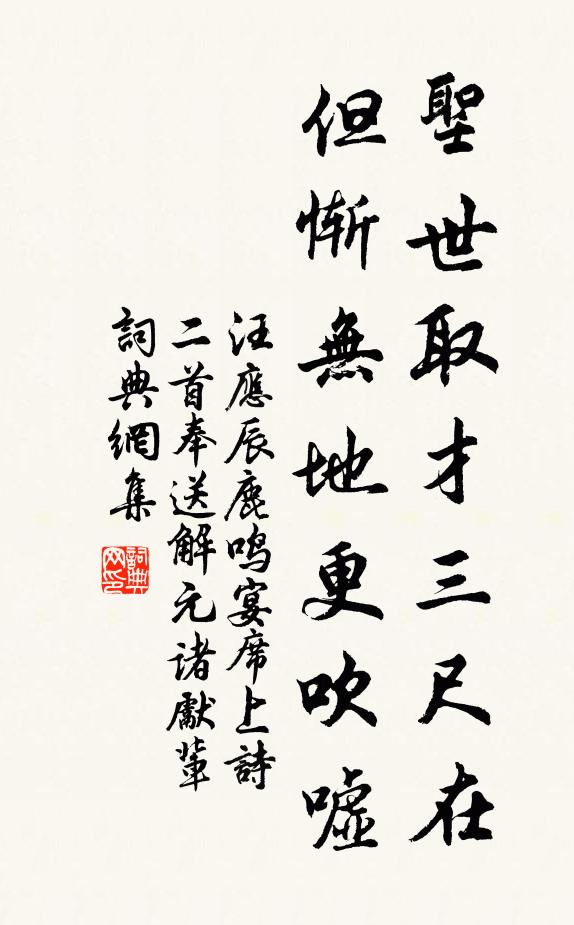 聖世取才三尺在
但慚無地更吹噓
汪應辰鹿鳴宴席上詩
二首奉送解元諸獻輩
詞典網集
詞典網印